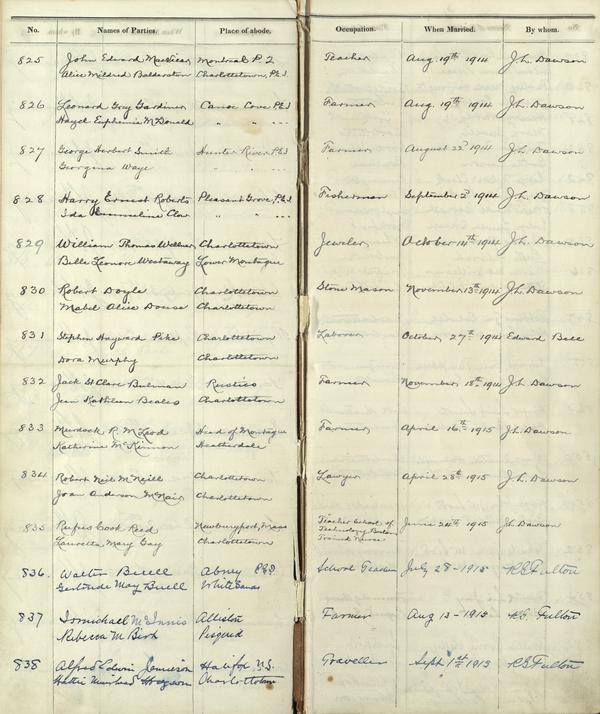 No. Names of Parties. Place of abode. Occupation. When Married. By whom.
825 John Edward Montreal P.Q Teacher Aug. 19th 1914 J.L. Dawson
Alice Mildred Balderston Charlottetown, P.E.I.
826 Leonard Guy Gardiner Canoe Cove P.E.I Farmer Aug. 19th 1914 J.L. Dawson
Hazel Euphemia McDonald " " " ---
827 George Herbert Smith Hunter River P.E.I Farmer August 22d 1914 J.L. Dawson
Georgina Waye " " ---
828 Harry Ernest Roberts Pleasant Grove, P.E.I Fisherman September 2d 1914 J.L. Dawson
Ida " " ---
829 William Thomas Wellner Charlottetown Jeweler October 14th 1914 J.L. Dawson
Belle Leonore Westaway Lower Montague
830 Robert Doyle Charlottetown Stone Mason November 13th 1914 J.L. Dawson
Mabel Alice Douse Charlottetown
831 Stephen Hayward Pike Charlottetown Laborer October 27th 1914 Edward Bell
Dora Murphy Charlottetown
832 Jack St Clare Bulman Rustico Farmer November 18th 1914 J.L. Dawson
Jean Kathleen Beales Charlottetown
833 Murdock R. McLeod Head of Montague Farmer April 16th 1915 J.L. Dawson
Katherine McKinnon Heatherdale
834 Robert Neil McNeill Charlottetown Lawyer April 28th 1915 J.L. Dawson
Joan Anderson McNair Charlottetown
835 Rufus Cook Reed Newburyport, Mass Teacher School of June 24th 1915 J.L. Dawson
Technology
Lauretta Mary Gay Charlottetown Trained Nurse
836. Walter Buell Abney P.E.I. School Teacher July 28 - 1915 R G Fulton
Gertrude May Buell White Sands
837 McInnis Alliston Farmer Aug 13 - 1915 R G. Fulton
Rebecca M Pisquid
838 Alfred Edwin Jamieson Halifax N.S. Traveller Sept 1st 1915 R G Fulton
Hattie Muirhead Charlottetown